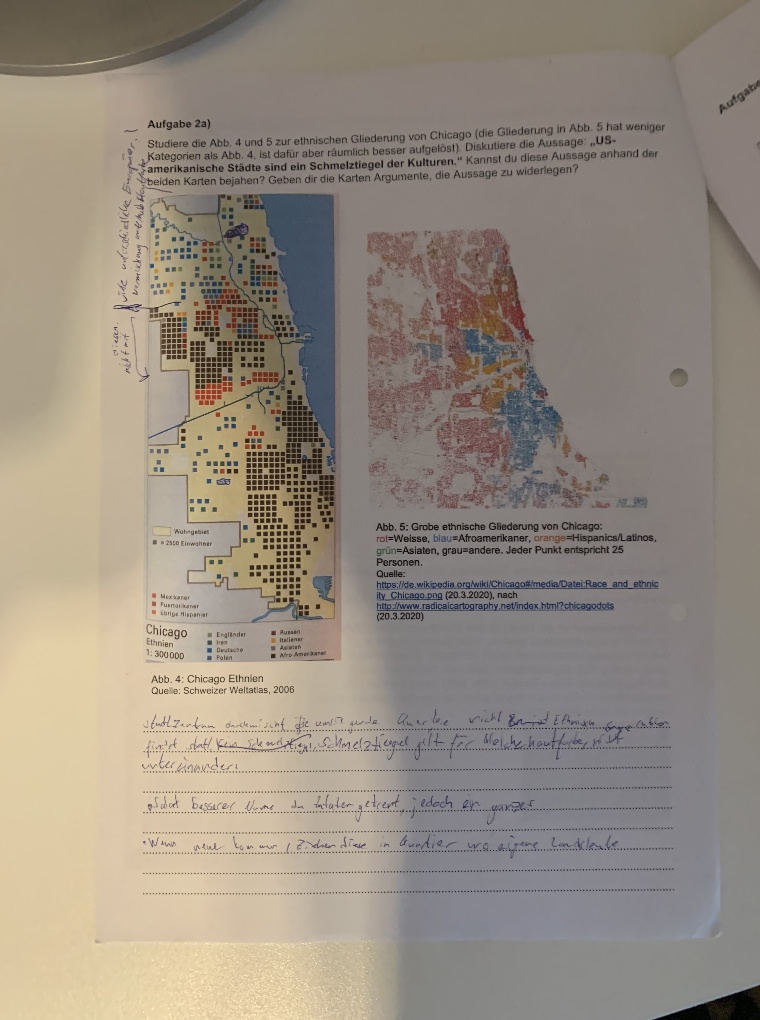 Aufgabe
Aufgabe 2a)
Studiere die Abb. 4 und 5 zur ethnischen Gliederung von Chicago (die Gliederung in Abb. 5 hat weniger
Kategorien als Abb. 4, ist dafür aber räumlich besser aufgelöst). Diskutiere die Aussage: „US-
amerikanische Städte sind ein Schmelztiegel der Kulturen.“ Kannst du diese Aussage anhand der
beiden Karten bejahen? Geben dir die Karten Argumente, die Aussage zu widerlegen?
viele unterschiedliche Europäer,
Vermischung
nicht mit
diesen.
Wohngebiet
= 2500 Einwohner
Mexikaner
Puertorikaner
übrige Hispanier
Chicago
Ethnien
1: 300 000
Engländer
Iren
Deutsche
Polen
Russen
Italiener
Asiaten
Afro-Amerikaner
Abb. 4: Chicago Ethnien
Quelle: Schweizer Weltatlas, 2006
Abb. 5: Grobe ethnische Gliederung von Chicago:
rot=Weisse, blau=Afroamerikaner, orange=Hispanics/Latinos,
grün=Asiaten, grau=andere. Jeder Punkt entspricht 25
Personen.
Quelle:
https://de.wikipedia.org/wiki/Chicago#/media/Datei:Race_and_ethnic
ity_Chicago.png (20.3.2020), nach
http://www.radicalcartography.net/index.html?chicagodots
(20.3.2020)
Stadtzentrum durchmischt die Quartiere nicht Ethnien
findet statt Schmelztiegel gilt für gleiche hautfarbe
untereinander.
Salat besserer Name da getrennt, jedoch ein ganzes
• Wenn neue kommen, ziehen diese in Quartier wo eigene Landsleute